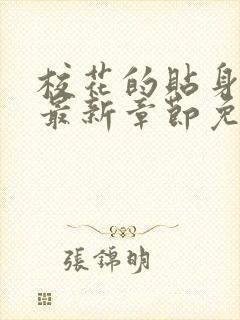 校花的貼身
最新章節免
張錦明